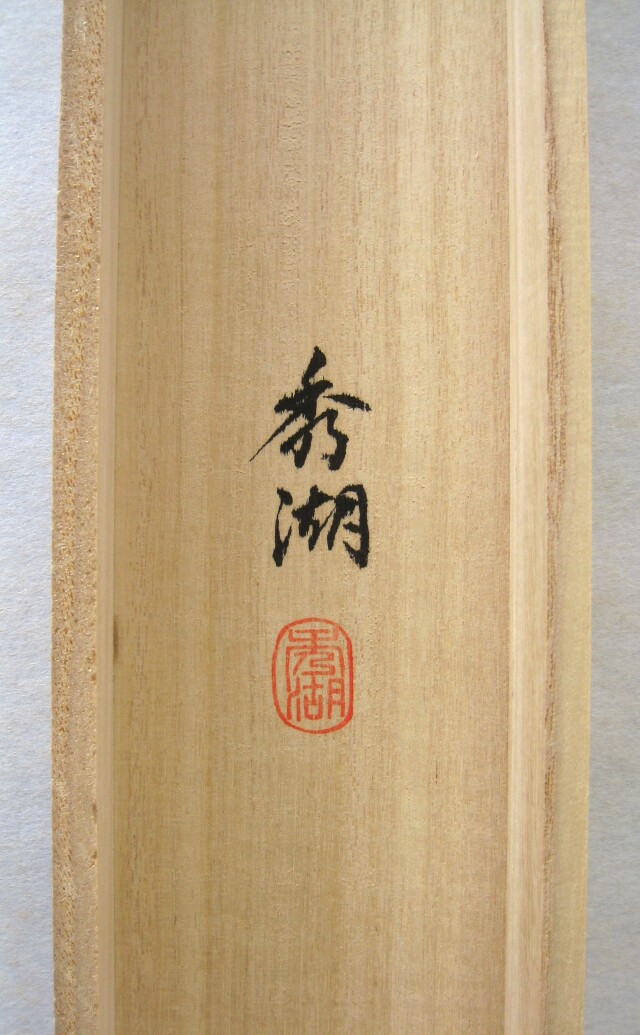 秀湖
秀湖